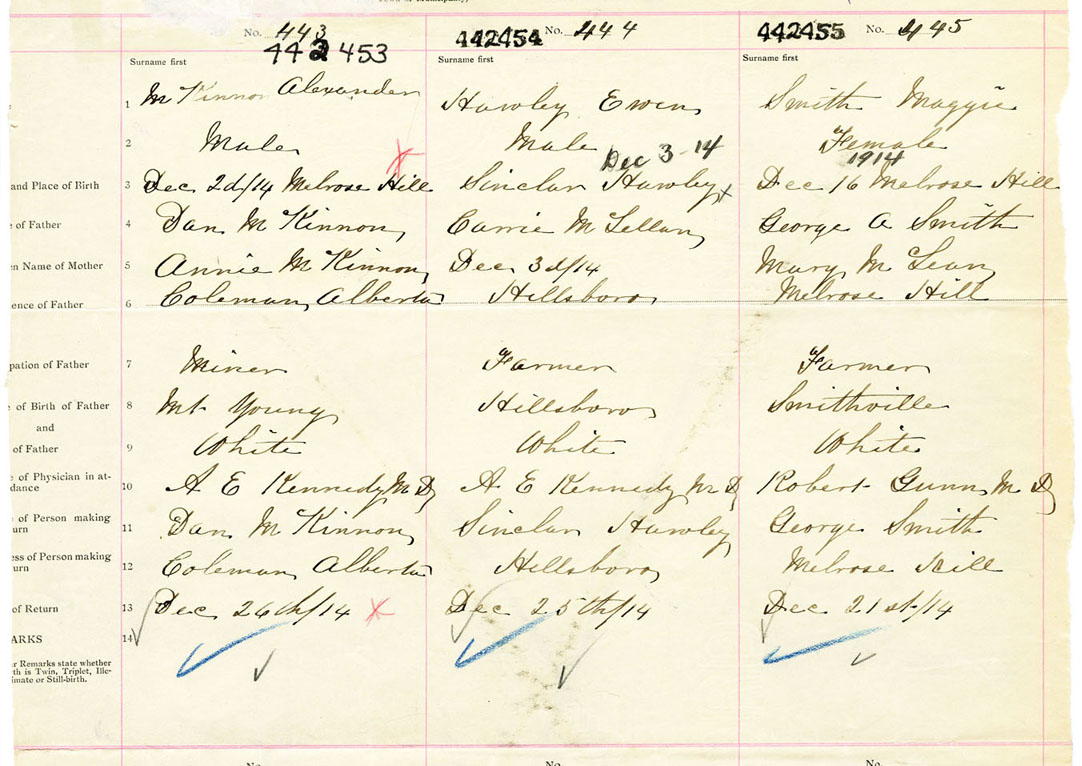 Town or Municipality,
No. 443
442453
Surname first
442454 No. 444
Surname first
442455 No. 445
Surname first
1 McKinnon Alexander
Hawley Ewen
Smith Maggie
2 Male
Male
Female
Dec 3-14
1914
and Place of Birth 3 Dec 2d/14 Melrose Hill
Sinclar Hawley x
Dec 16 Melrose Hill
e of Father 4 Dan McKinnon
Carrie McLellan
George A Smith
n Name of Mother 5 Annie McKinnon
Dec 3d/14
Mary McLean
ence of Father 6 Coleman Alberta
Hillsboro
Melrose Hill
pation of Father 7 Miner
Farmer
Farmer
e of Birth of Father 8 Mt Young
Hillsboro
Smithville
and
of Father 9 White
White
White
e of Physician in at-
dance 10 A E Kennedy M D
A E Kennedy M D
Robert Gunn M D
e of Person making
urn 11 Dan McKinnon
Sinclar Hawley
George Smith
ess of Person making
urn 12 Coleman Alberta
Hillsboro
Melrose Hill
of Return 13 Dec 26th/14 x
Dec 25th/14
Dec 21st/14
ARKS 14
r Remarks state whether
th is Twin, Triplet, Ille-
imate or Still-birth.
No.
No.
No.